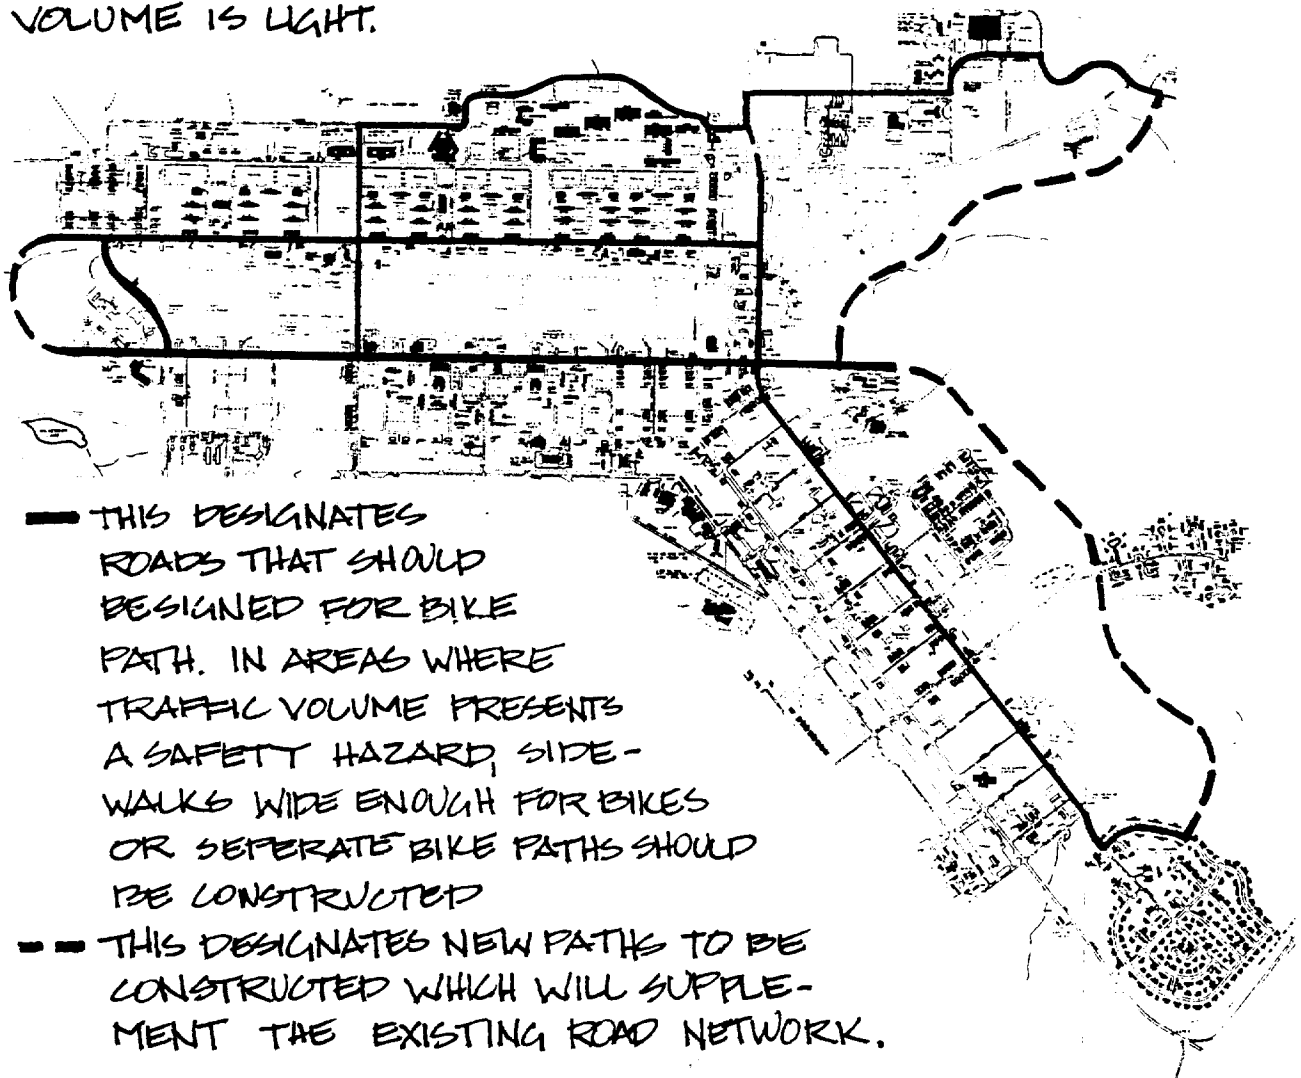 VOLUME IS LIGHT.
THIS DESIGNATES
ROADS THAT SHOULD
DESIGNED FOR BIKE
PATH. IN AREAS WHERE
TRAFFIC VOLUME PRESENTS
A SAFETY HAZARD, SIDE-
WALKS WIDE ENOUGH FOR BIKES
OR SEPERATE BIKE PATHS SHOULD
BE CONSTRUCTED
THIS DESIGNATES NEW PATHS TO BE
CONSTRUCTED WHICH WILL SUPPLE-
MENT THE EXISTING ROAD NETWORK.